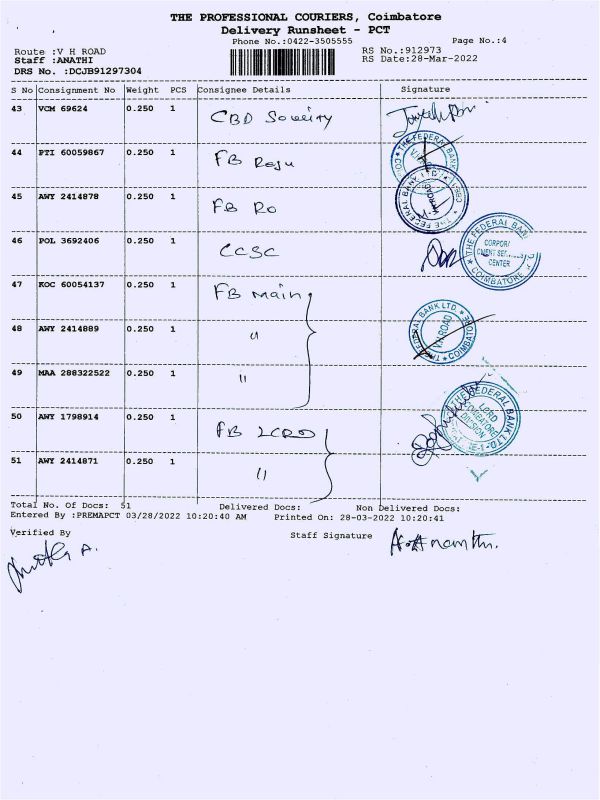 THE PROFESSIONAL COURIERS, Coimbatore
Delivery Runsheet - PCT
Phone No.:0422-3505555 Page No.:4
Route :V H ROAD RS No.:912973
Staff :ANATHI RS Date:28-Mar-2022
DRS No. :DCJB91297304
S No Consignment No Weight PCS Consignee Details Signature
43 VCM 69624 0.250 1 CBD
44 PTI 60059867 0.250 1 FB Raju
45 AWY 2414878 0.250 1 FB RO
46 POL 3692406 0.250 1 CCSC
47 KOC 60054137 0.250 1 FB main
48 AWY 2414889 0.250 1 "
49 MAA 288322522 0.250 1 "
50 AWY 1798914 0.250 1 FB LCRD
51 AWY 2414871 0.250 1 "
THE FEDERAL BANK
THE FEDERAL BANK LTD.
THE FEDERAL BANK
CENTER
COIMBATORE
FEDERAL BANK LTD.
V.H ROAD
COIMBATORE
THE FEDERAL BANK LTD.
LCRD
DIVISION
Total No. Of Docs: 51 Delivered Docs: Non Delivered Docs:
Entered By :PREMAPCT 03/28/2022 10:20:40 AM Printed On: 28-03-2022 10:20:41
Verified By Staff Signature